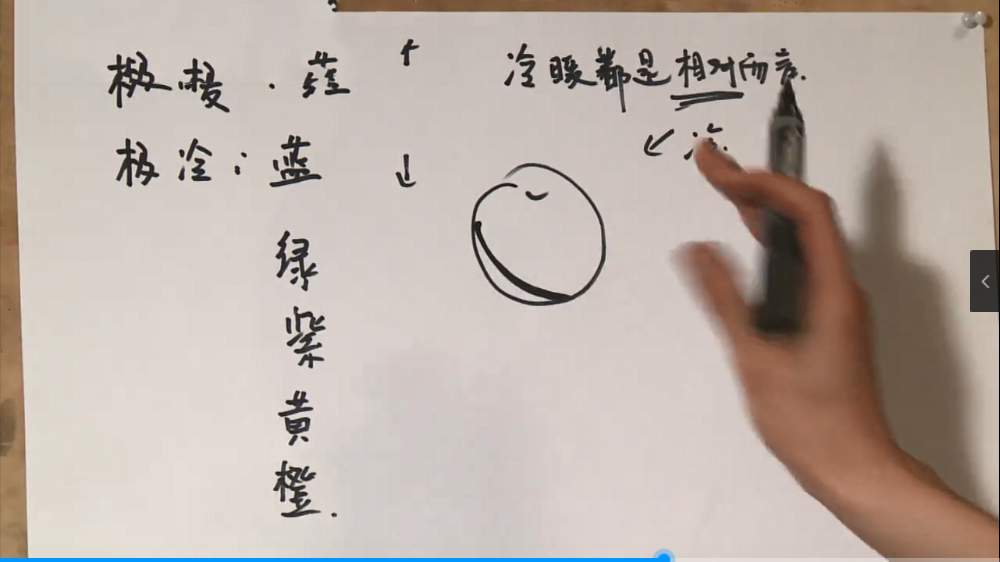 极暖 .
极冷：蓝
绿
紫
黄
橙.
冷暖都是相对而言.
冷.